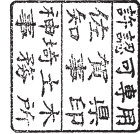 許認可専用
佐賀県
知事印
神埼土木
事務所